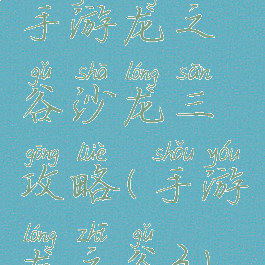 手游龙之
gǔ shā lóng sān
谷沙龙三
gōng lüè shǒu yóu
攻略(手游
lóng zhī gǔ
龙之谷)